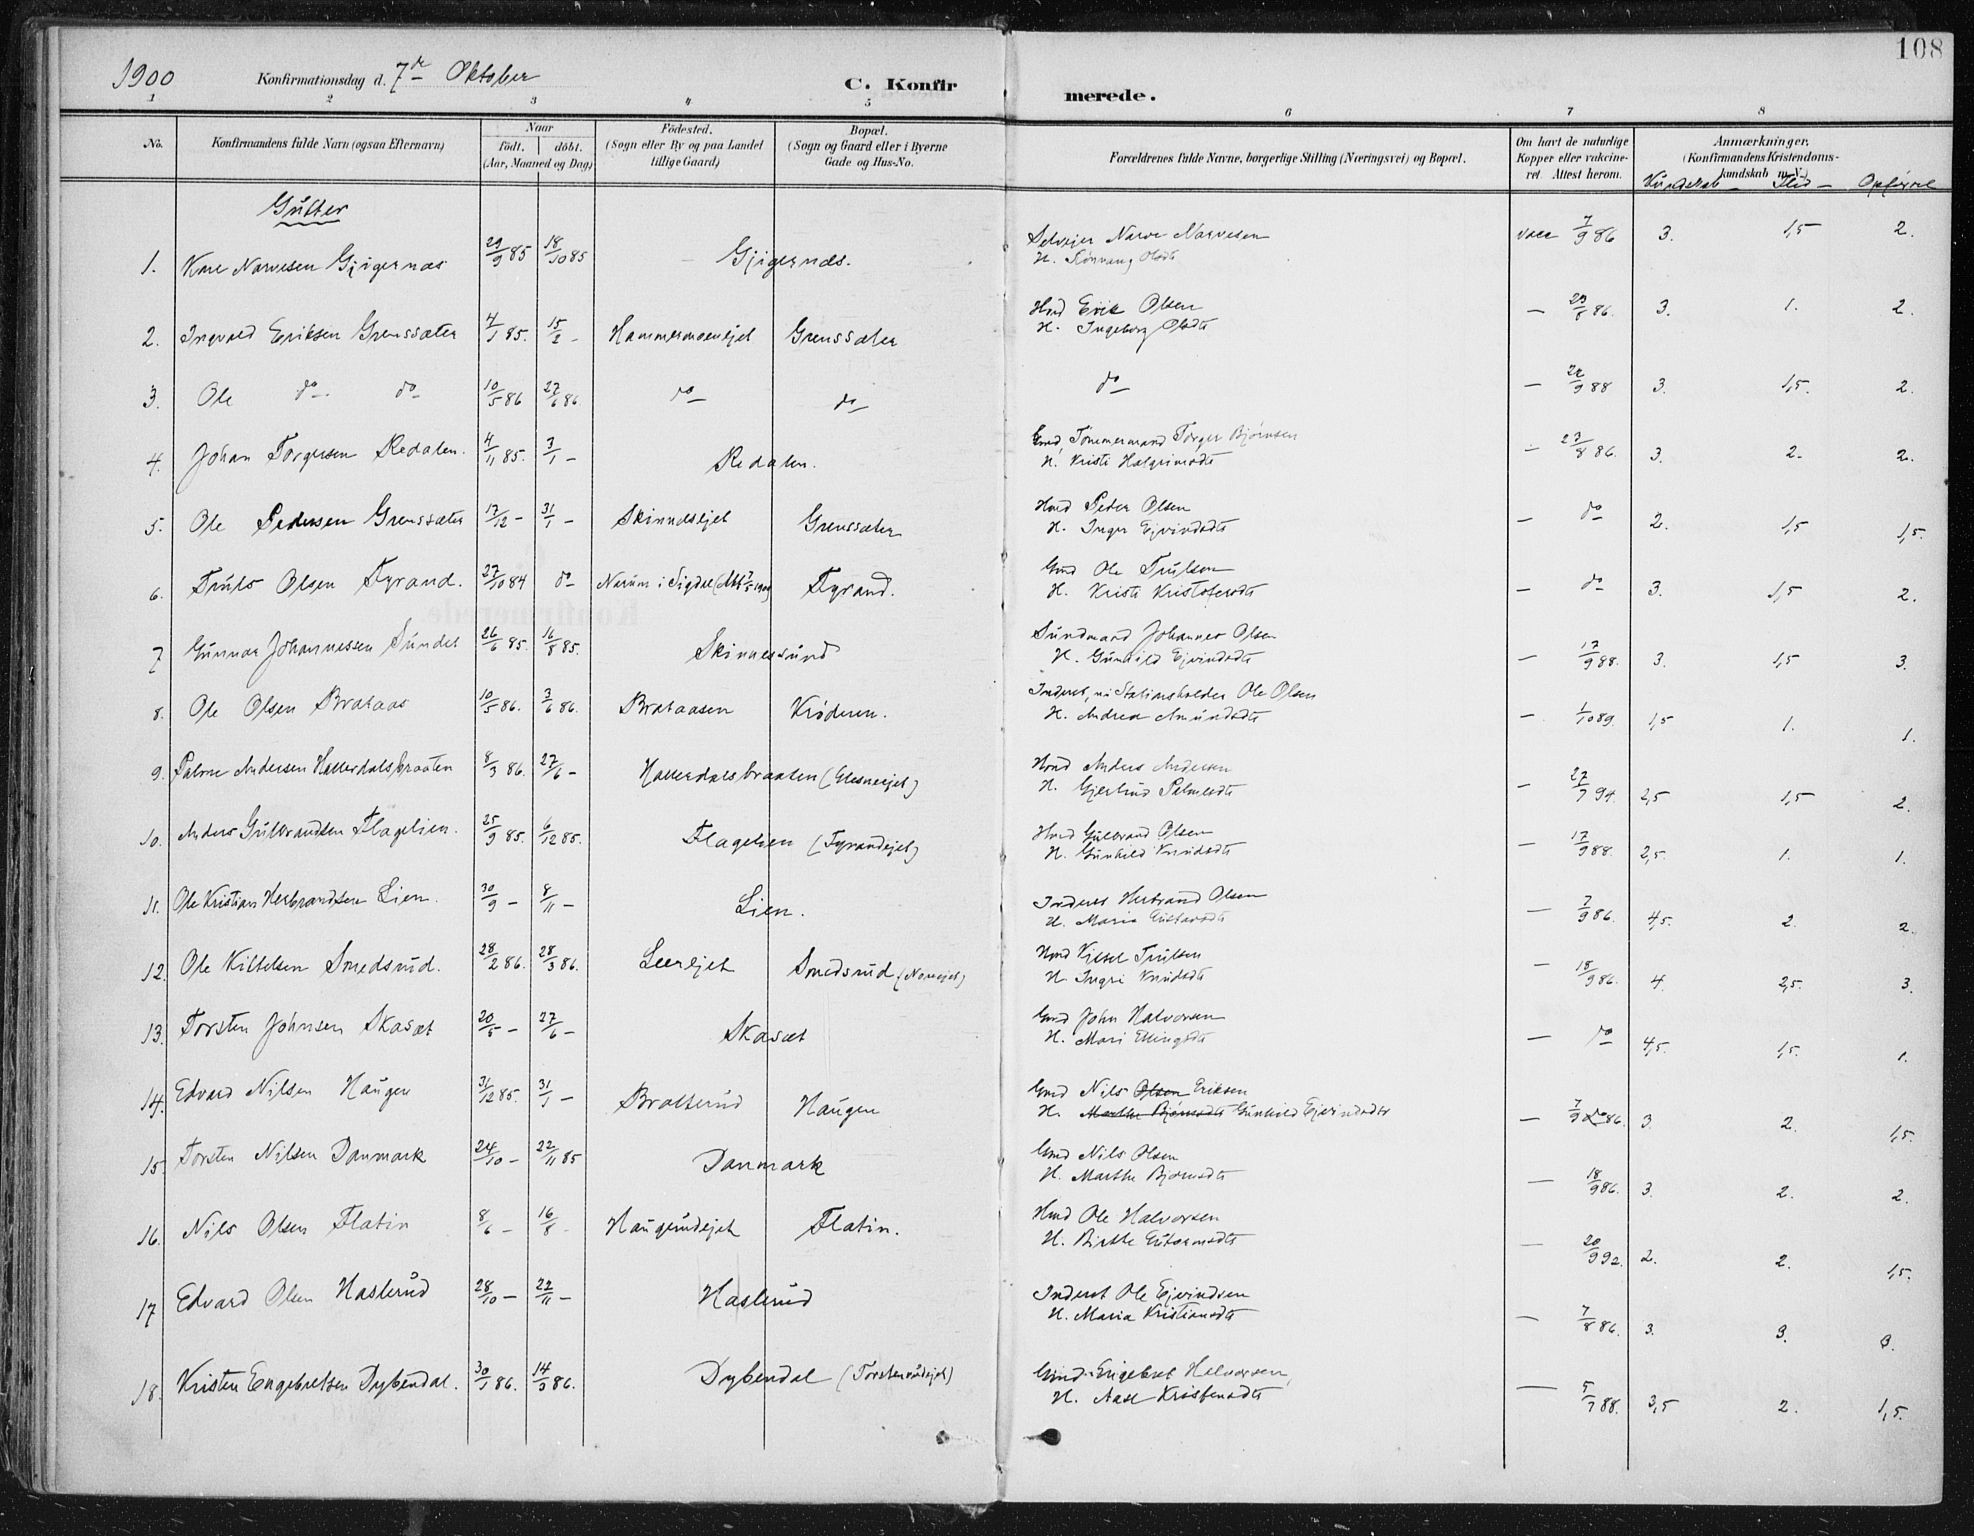 108
1900 Konfirmationsdag d. 7de Oktober C. Konfirmerede.
1 2 3 4 5 6 7 8
No. Konfirmandens fulde Navn (ogsaa Efternavn) Naar födt. döbt. (Aar, Maaned og Dag) Födested. (Sogn eller By og paa Landet tillige Gaard) Bopæl. (Sogn og Gaard eller i Byerne Gade og Hus-No. Forældrenes fulde Navne, borgerlige Stilling (Næringsvei) og Bopæl. Om havt de naturlige Kopper eller vakcineret. Attest herom. Anmærkninger. (Konfirmandens Kristendomskundskab m. V.)
Kundskab – Flid – Opførsel
Gutter
1. Narvesen Gjigernæs 29/9 85 18/10 85 Gjigernæs. Selvejer Narve Narvesen vacc 7/9 86 3. 1,5 2.
H.
2. Ingvald Eriksen Grenssæter 4/1 85. 15/2 – Hammermoenejet Grenssæter Hmd Erik Olsen – 29/8 86. 3. 1. 2.
H. Ingeborg Olsdt
3. Ole do do 10/5 86 27/6 86 do do do – 22/9 88 3. 1,5. 2.
4. Johan Torgersen Redalen. 4/11 85. 3/1 – Redalen. Gmd Tömmermand Torger Björnsen – 27/8 86. 3. 2. 2.
H. Kristi Halgrimsdt
5. Ole Pedersen Grenssæter 17/12 – 31/1 – Skinnesejet Grenssæter Hmd Peter Olsen – do 2. 1,5 1,5.
H. Inger Ejvindsdt
6. Truls Olsen Fyrand. 27/10 84 do Nerum i Sigdal Fyrand. Gmd Ole Trulsen – do 3. 1,5 2.
H. Kristi Kristofersdt
7 Gunnar Johannessen Sundet 26/6 85. 16/8 85. Skinnessund Sundmand Johannes Olsen – 17/9 88. 3. 1,5 3.
H. Gunhild Ejvindsdt
8. Ole Olsen Brataas 10/5 86. 3/6 86. Brataasen Krøderen. Inderst, nu Stationsholder Ole Olsen – 1/10 89. 1,5 1. 1.
H. Andrea Amundsdt
9. Palme Andersen Hallerdalsbraaten 8/3 86. 27/6 – Hallerdalsbraaten (Glesneejet) Hmd Anders Andersen – 27/7 94. 2,5 1,5 2.
H. Gjertrud Palmesdt
10. Anders Gulbrandsen Flagelien. 25/9 85. 6/12 85. Flagelien (Fyrandejet) Hmd Gulbrand Olsen – 17/9 88. 2,5. 1. 1.
H. Gunhild Knudsdt
11. Ole Kristian Herbrandsen Lien. 30/9 – 8/11 – Lien. Inderst Herbrand Olsen – 7/9 86. 4,5. 2. 2.
H. Maria Gustavsdt
12. Ole Kittelsen Smedsrud. 28/2 86. 28/3 86. Leerejet Smedsrud Hmd Kittel Trulsen – 18/9 86. 4. 2,5. 3.
H. Ingri Knudsdt
13. Torsten Johnsen Skasæt 20/5 – 27/6 – Skasæt Gmd John Halvorsen – do 4,5. 1,5. 1.
H. Mari Ellingsdt
14. Edvard Nilsen Haugen 31/12 85. 31/1 – Bratterud Haugen Gmd Nils Olsen Eriksen – 7/9 86. 3. 2. 1,5.
H. Marthe Bjørnsdt Gunhild Ejvindsdt
15. Torsten Nilsen Danmark 24/10 – 22/11 85 Danmark Gmd Nils Olsen – 18/9 86. 3. 2. 2.
H. Marthe Bjørnsdt
16. Nils Olsen Flatin 8/6 – 16/8 – Haugerudejet Flatin. Hmd Ole Halvorsen – 20/9 92. 2. 2. 1,5.
H. Birthe Guttormsdt
17 Edvard Olsen Haslerud 28/10 – 22/11 – Haslerud Inderst Ole Ejvindsen – 7/8 86. 3. 3. 3.
H. Maria Kristiansdt
18. Kristen Engebretsen Dybendal. 30/1 86. 14/3 86. Dybendal (Torsterudejet) Gmd Engebret Halvorsen, – 5/7 88. 3,5 2. 1,5.
H. Aase Kristensdt